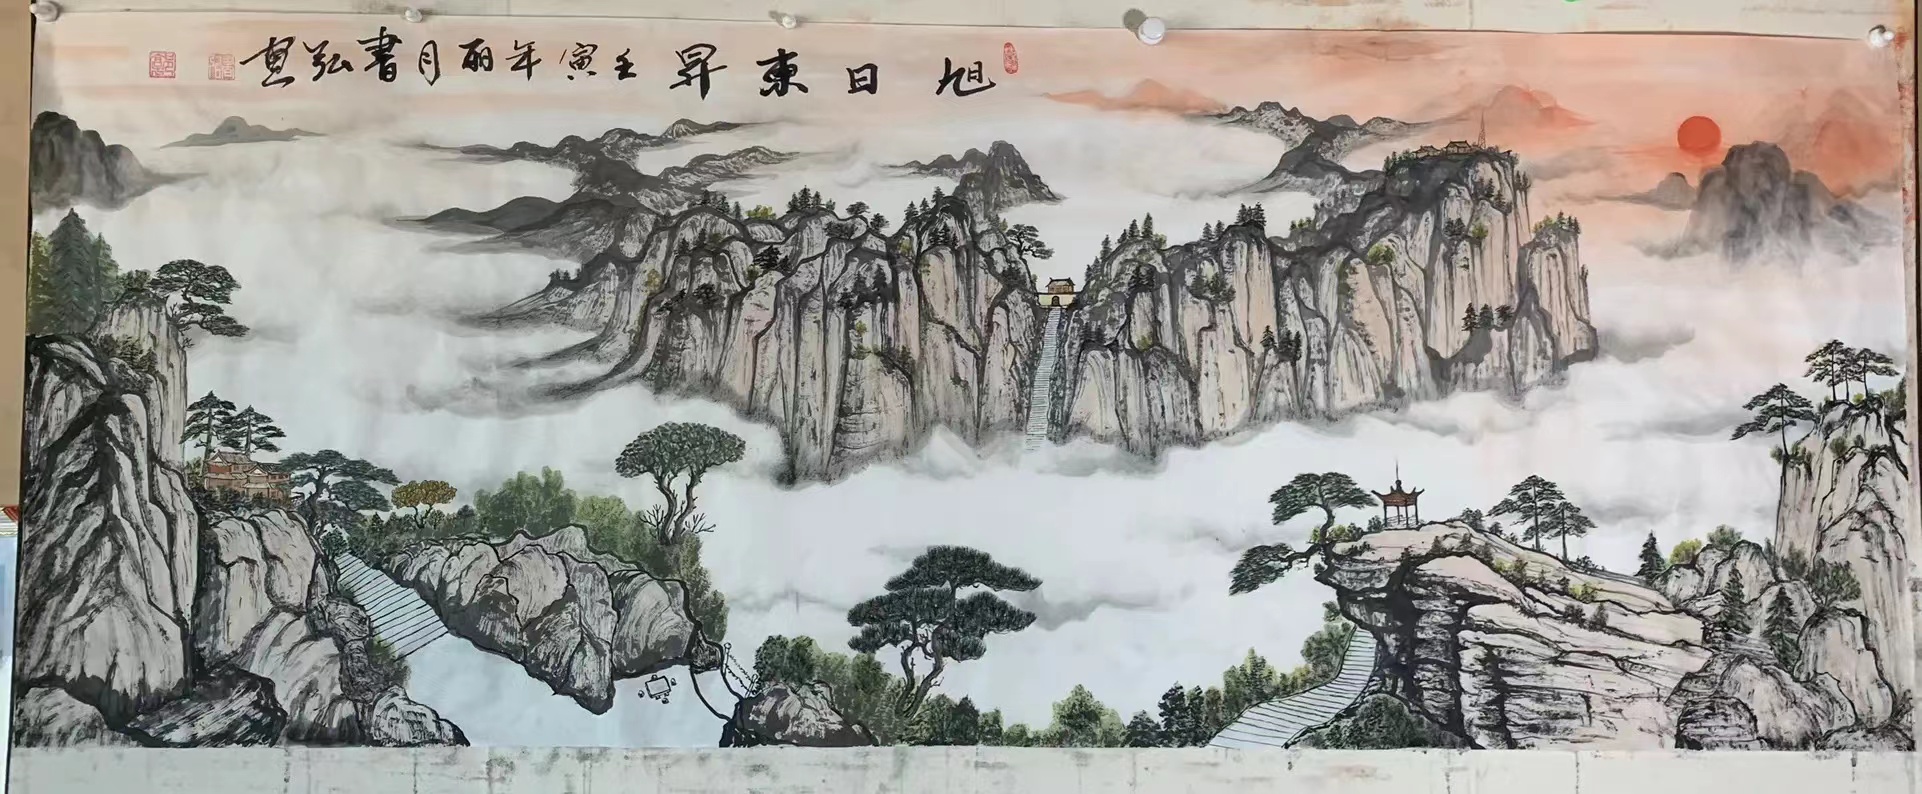 旭日東昇 壬寅年丽月書弘